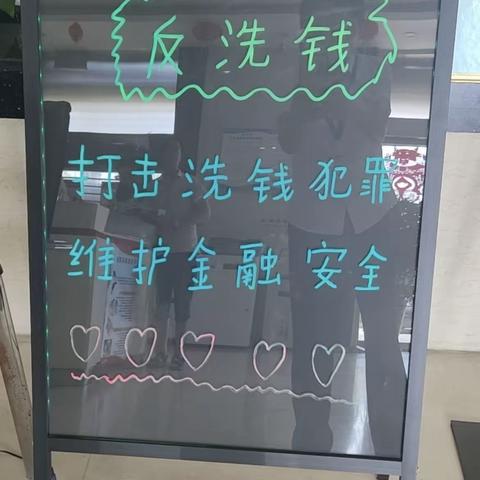 反洗钱
打击洗钱犯罪
维护金融安全